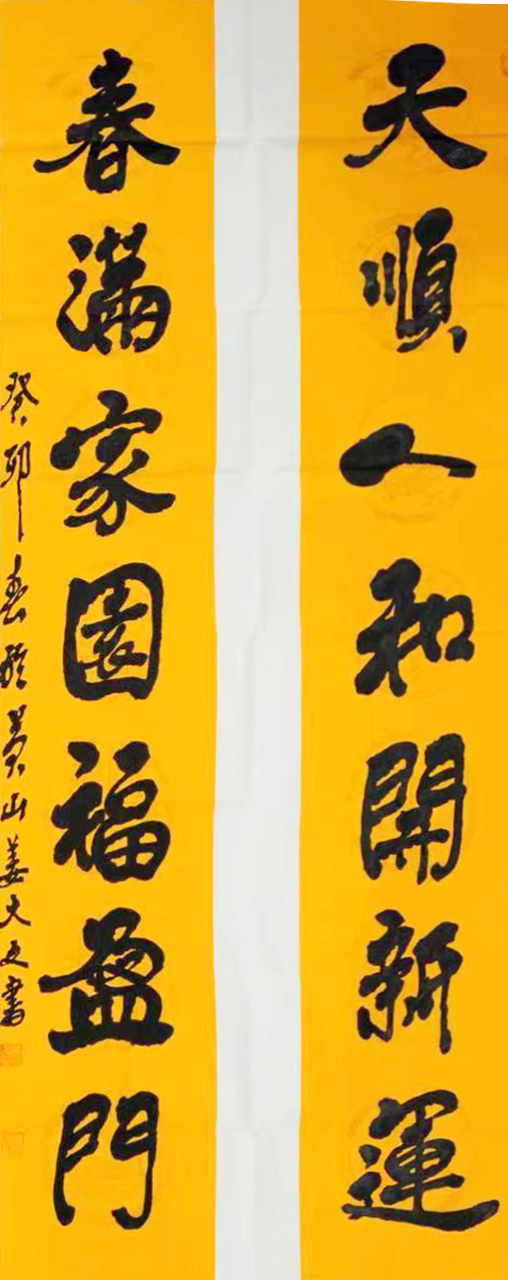 天順人和開新運
春滿家園福盈門
癸卯春於黃山姜大文書